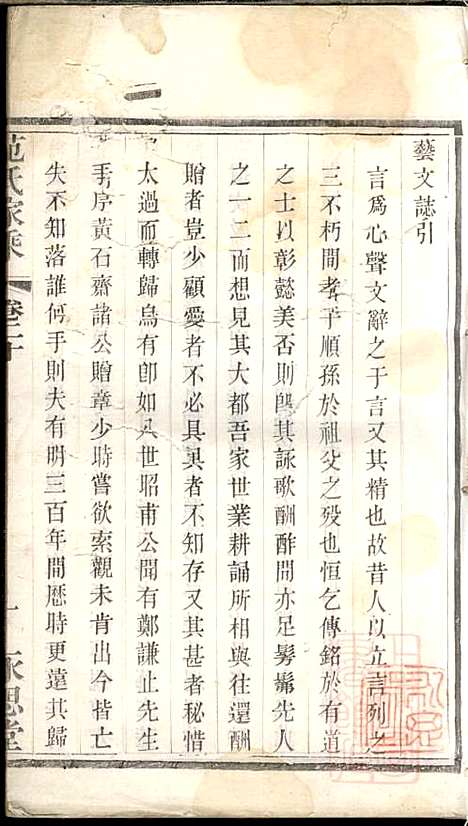 藝文誌引
言爲心聲文辭之于言又其精也故昔人以立言列之
三不朽間孝子順孫於祖父之歿也恒乞傳銘於有道
之士以彰懿美否則卽其詠歌酬酢間亦足髣髴先人
之一二而想見其大都吾家世業耕誦所相與往還酬
贈者豈少顧愛者不必具具者不知存又其甚者秘惜
太過而轉歸烏有卽如八世昭甫公聞有鄭謙止先生
手序黃石齋諸公贈章少時嘗欲索觀未肯出今皆亡
失不知落誰何手則夫有明三百年間歷時更遠其歸
范氏家乘
卷之十
一
永思堂